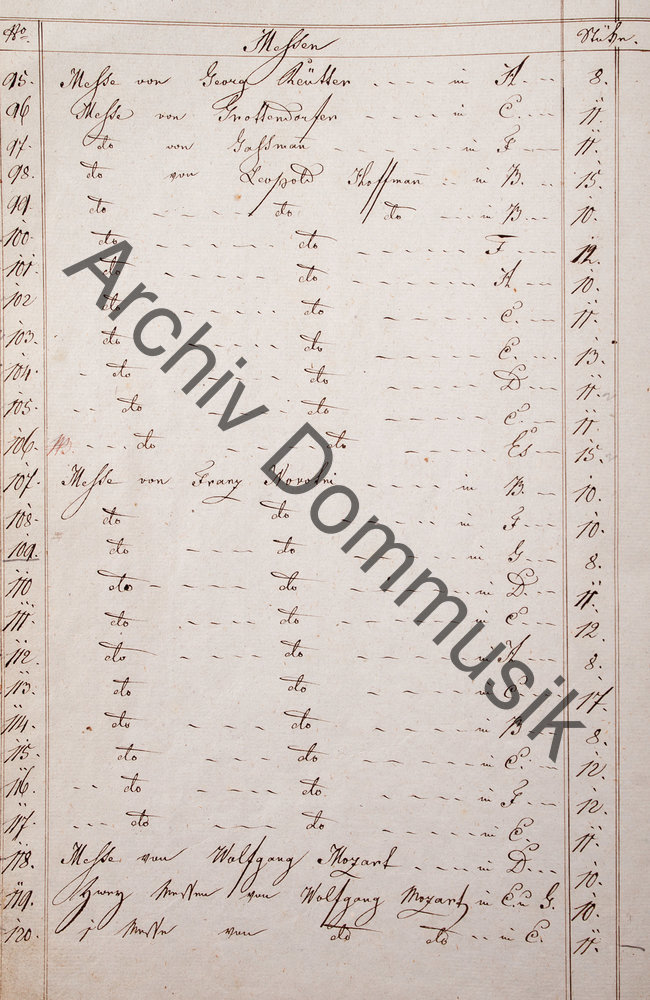 No. Messen Stükr.
95. Messe von Georg Reütter in A. 8.
96 Messe von Grottendorfer in C. 11.
97. do von Gassman in F 11.
98. do von Leopold Hoffmann in B. 15.
99. do do do in B. 10.
100 do do F 12.
101. do do A. 10.
102 do do C. 11.
103. do do C. 13.
104. do do D 11.
105. do do C. 11.
106. do do Es 15.
107. Messe von Franz Novotni in B. 10.
108. do do in F 10.
109. do do in G 8.
110 do do in D. 11.
111. do do in C 12.
112. do do in A 8.
113. do do in C. 17.
114. do do in B 8.
115 do do in C. 12.
116. do do in F 12.
117. do do in C. 11.
118. Messe von Wolfgang Mozart in D. 10.
119. Zwey Messen von Wolfgang Mozart in C. u G. 10.
120. 1 Messe von do do in C. 11.
Archiv Dommusik